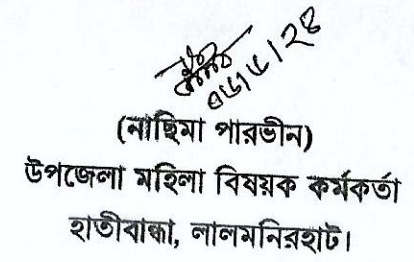 (নাছিমা পারভীন)
উপজেলা মহিলা বিষয়ক কর্মকর্তা
হাতীবান্ধা, লালমনিরহাট।